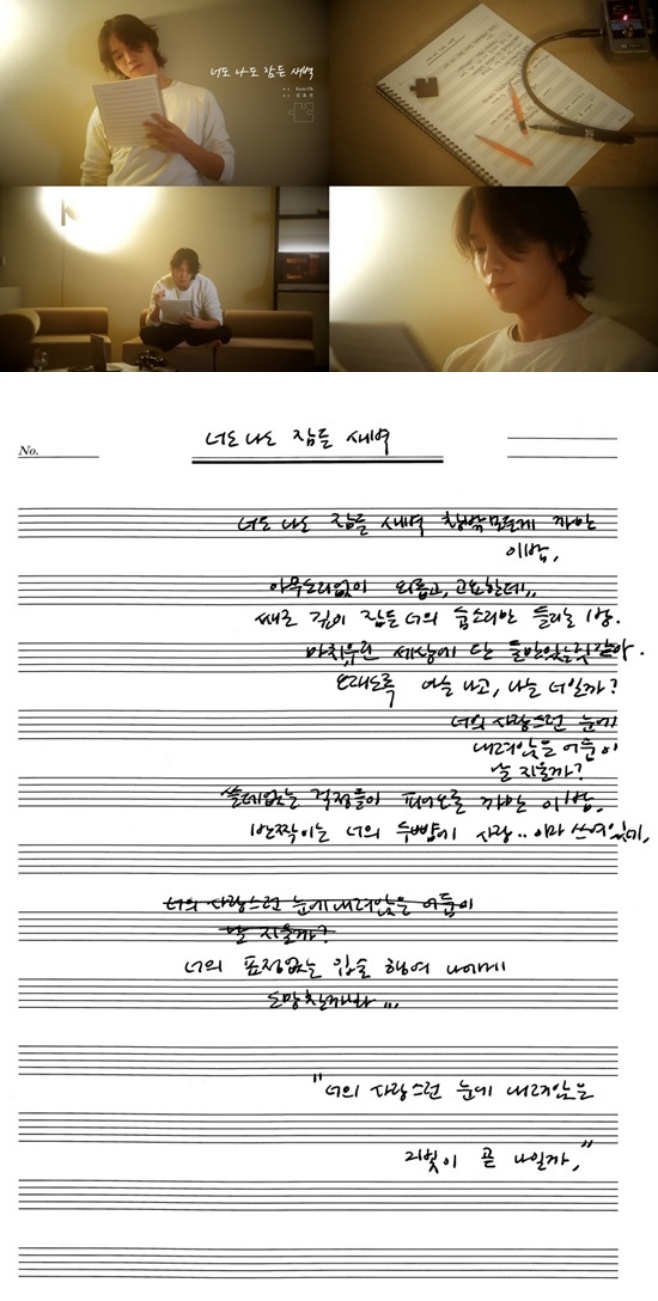 너도 나도 잠든 새벽
Kevin Oh
No.
너도 나도 잠든 새벽
너도 나도 잠든 새벽 창밖 모든게 까만
이밤,
아무소리없이 외롭고, 고요한데,,
새로 깊이 잠든 너의 숨소리만 들리는 1밤.
마치 우린 세상에 단 둘만 있는 것 같아.
오래도록 너는 나고, 나는 너일까?
너의 사랑스런 눈에
내려앉은 어둠이
날 지울까?
쓸데없는 걱정들이 피어오를 까만 이밤,
반짝이는 너의 두뺨에 사랑.. 이라 쓰여있네,
너의 사랑스런 눈에 내려앉은 어둠이
날 지울까?
너의 표정없는 입술 행여 나에게
도망칠까봐,,,
"너의 사랑스런 눈에 내려앉은
리빛이 곧 나일까,"